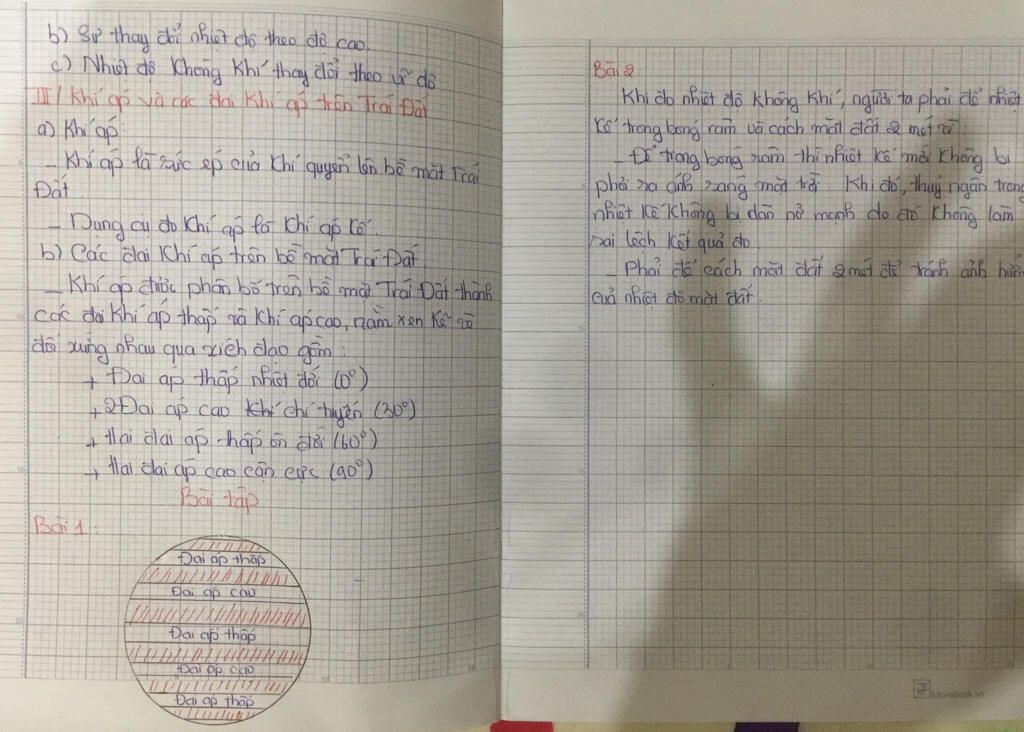 b) Sự thay đổi nhiệt độ theo độ cao.
c) Nhiệt độ không khí thay đổi theo vĩ độ
III/ Khí áp và các đai khí áp trên Trái Đất
a) Khí áp:
- Khí áp là sức ép của khí quyển lên bề mặt Trái
Đất.
- Dụng cụ đo khí áp là khí áp kế.
b) Các đai khí áp trên bề mặt Trái Đất
- Khí áp được phân bố trên bề mặt Trái Đất thành
các đai khí áp thấp và khí áp cao, nằm xen kẽ và
đối xứng nhau qua xích đạo gồm:
+ Đai áp thấp nhiệt đới (0°)
+ 2 Đai áp cao khí chí tuyến (30°)
+ Hai đai áp thấp ôn đới (60°)
+ Hai đai áp cao cận cực (90°)
Bài tập
Bài 1:
Đai áp thấp
Đai áp cao
Đai áp thấp
Đai áp cao
Đai áp thấp
Bài 2:
Khi đo nhiệt độ không khí, người ta phải để nhiệt
kế trong bóng râm và cách mặt đất 2 mét vì:
- Để trong bóng râm thì nhiệt kế mới không bị
phải ra ánh sáng mặt trời. Khi đó, thuỷ ngân trong
nhiệt kế không bị dãn nở mạnh do đó không làm
sai lệch kết quả đo.
- Phải để cách mặt đất 2 mét để tránh ảnh hưởng
của nhiệt độ mặt đất.